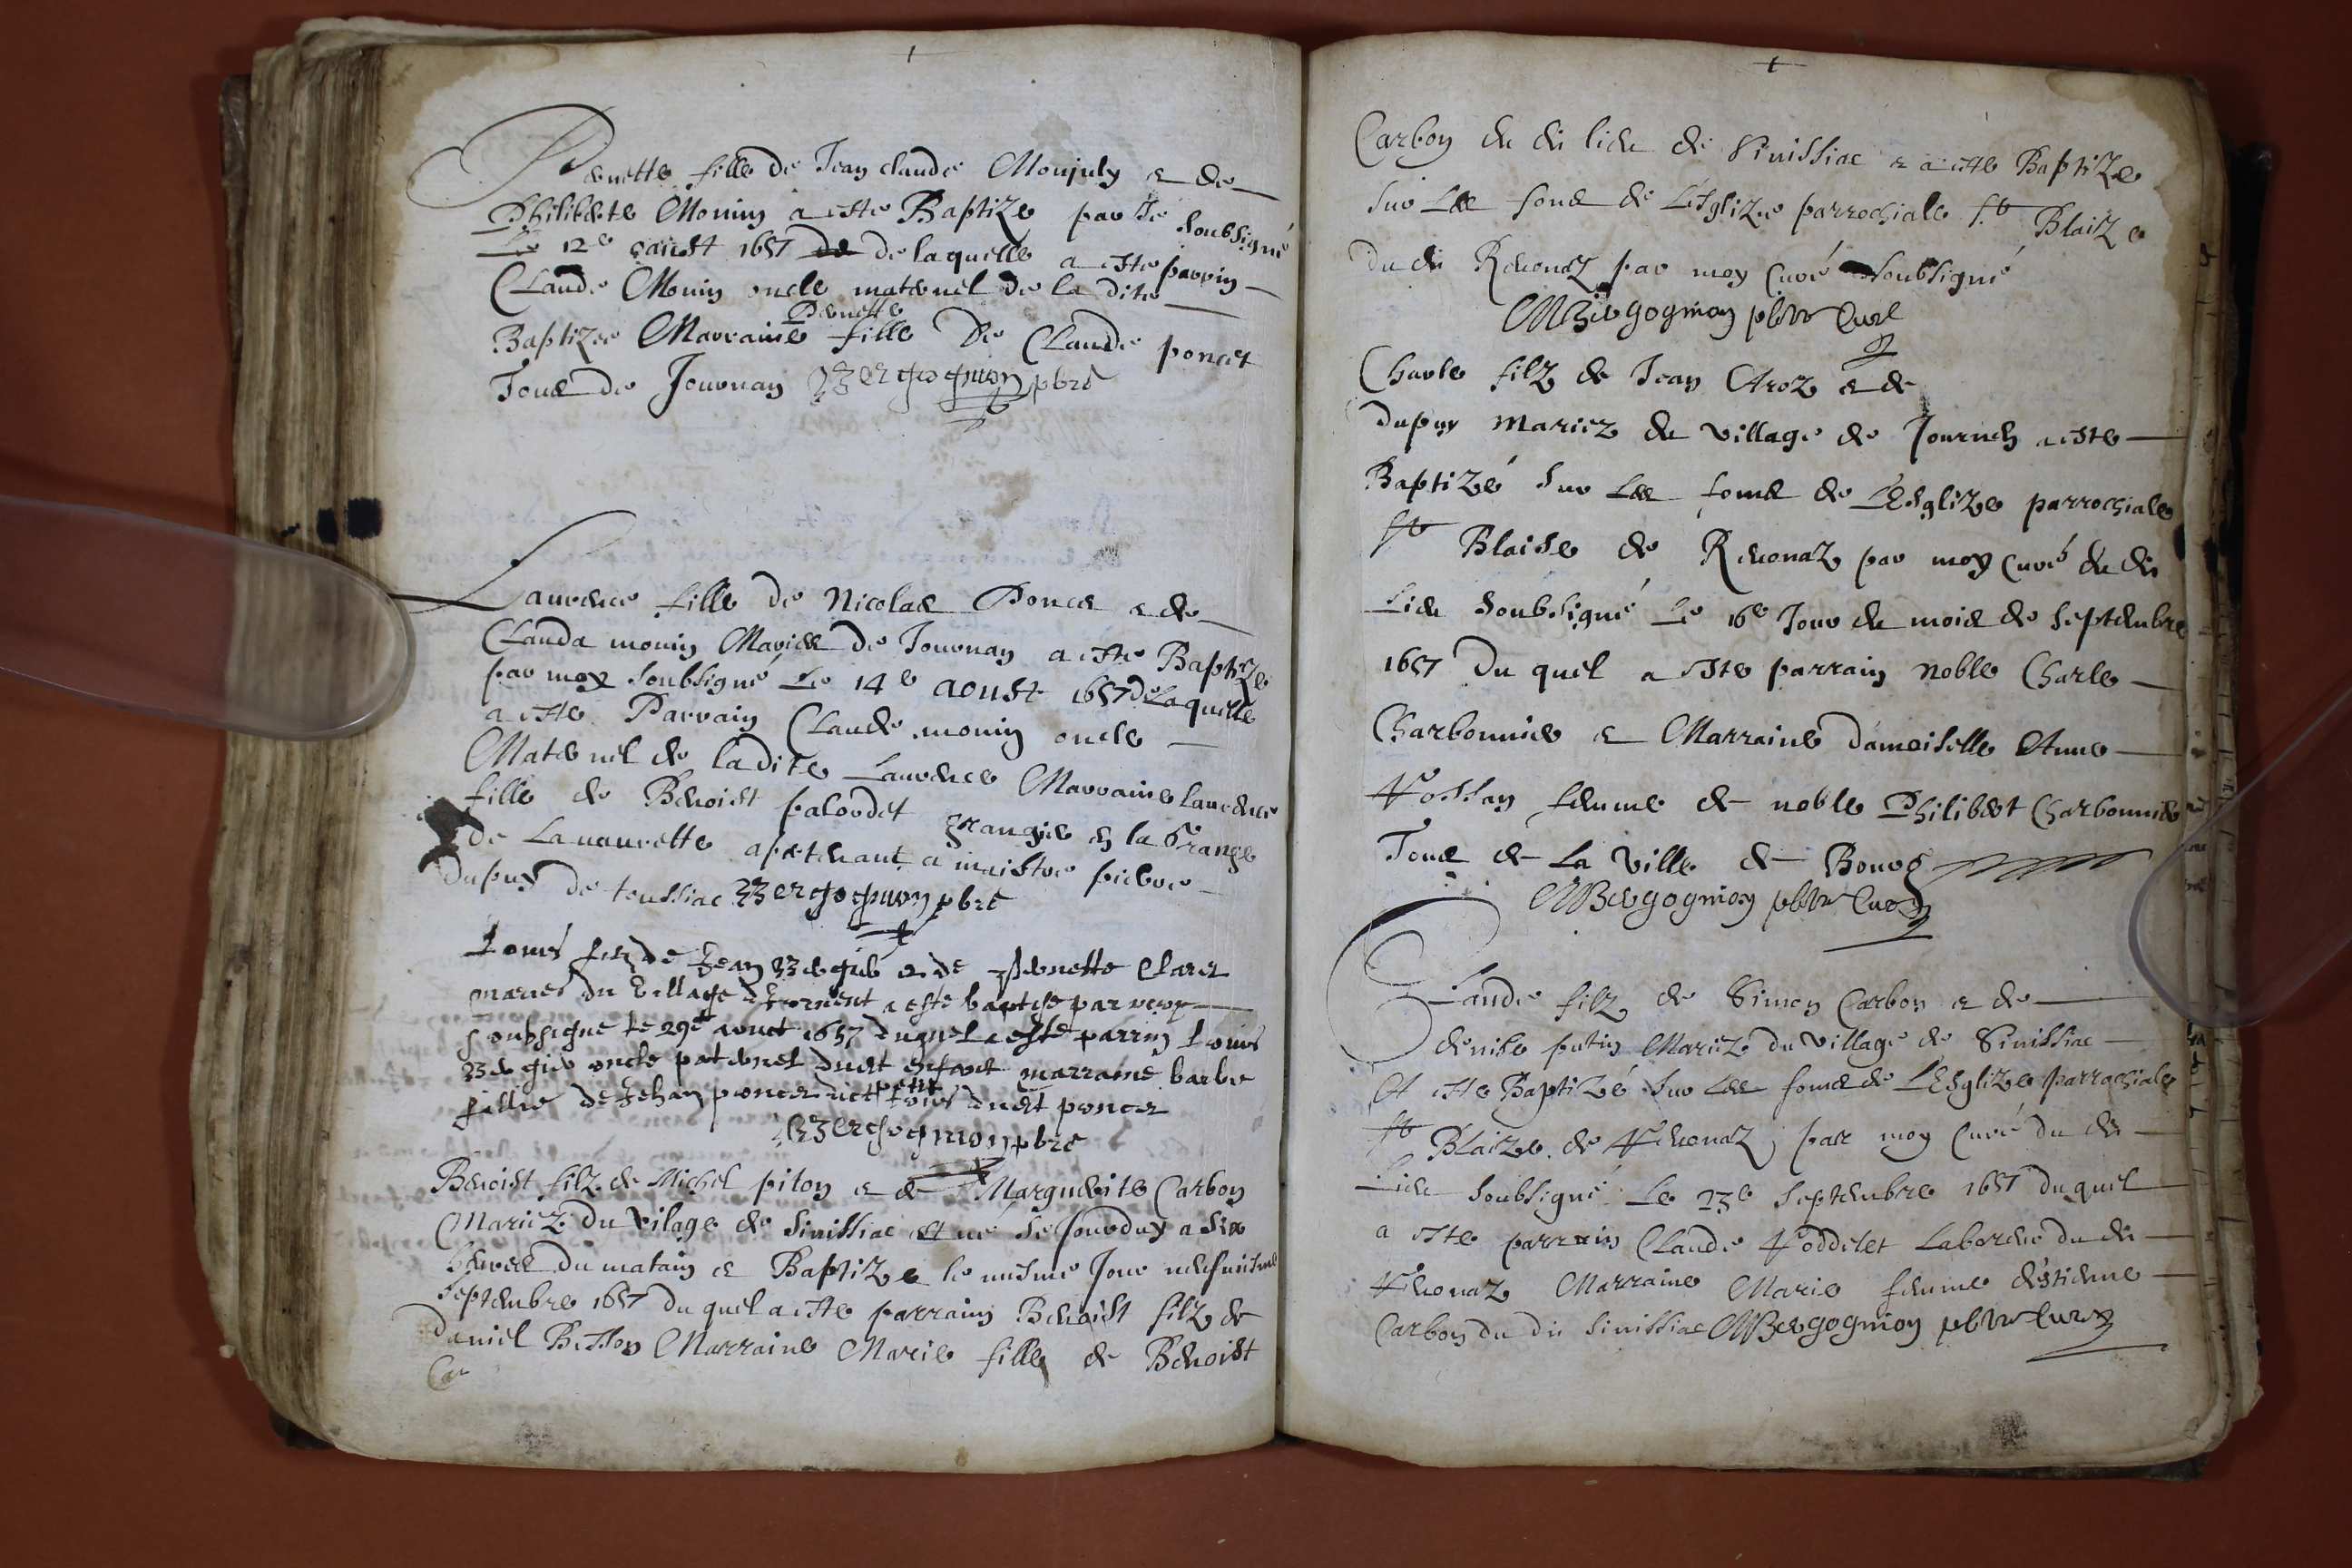 Pernette fille de Jean claude Monjuly & de
Philiberte Monin a este Baptize par Je soubsigné
Le 12e aoust 1657 de de laquelle a este parrin
Claude Monin oncle maternel de la dite
Pernette
Baptizee Marraine fille De Claude poncet
Tous de Journan Bergognion pbre
Laurence fille de Nicolas Poncet & de
Clauda monin Mariés de Journan a este Baptize
par moy soubsigné Le 14e aoust 1657 de Laquelle
a este Parrain Claude monin oncle
Maternel de ladite Laurence Marraine laurence
fille de Benoist palordet grangier en la Grange
de Lavaurette apartenant a maistre pierre
dupuy de toussiac Bergognion pbre
Louis filz de Jean Bergier & de Pernette Claret
maries du village de tornent a este baptise par moy
soubsigne le 29e aoust 1657 duquel a este parrin Louis
Bergier oncle paternel dudt enfant marraine barbe
fillie de Jehan poncet dict petit Louis dudt poncet
Bergognion pbre
Benoist filz de Michel piton & de Marguerite Carbon
Mariez du vilage de Sinissiac est né le jourduy a six
heures du matain & Baptize le mesme Jour neufuiesme
Septembre 1657 du quel a este parrain Benoist filz de
Daniel Besson Marraine Marie fille de Benoist
Car
Carbon du di lieu de Sinissiac & a este Baptize
sur Les fons de L'Eglize parrochiale St Blaize
du di Revonaz par moy Curé soubsigné
MBergognion pbre Curé
Charle filz de Jean Aroz & de
dupuy mariez du village de Journeh a este
Baptizé sur Les fons de L'Esglize parrochiale
St Blaise de Revonaz par moy Curé du di
Lieu soubsigné Le 16e Jour du mois de Septembre
1657 Du quel a este parrain noble Charle
Charbonnier & Marraine damoiselle Anne
Vossan femme de noble Philibert Charbonnier
Tous de La Ville de Bourg
MBergognion pbre Curé
Claude filz de Simon Carbon & de
denise putin Mariez du village de Sinissiac
Et este Baptizé sur Les fons de L'Esglize parrochiale
St Blaize de Revonaz par moy Curé du di
Lieu soubsigné Le 23e Septembre 1657 duquel
a este parrain Claude Voddelet Laborieu du di
Revonaz Marraine Marie femme d'estienne
Carbon du di Sinissiac MBergognion pbre Curé